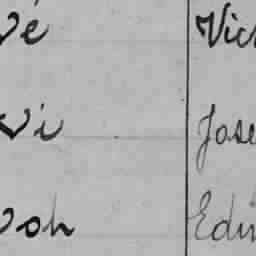 vé Vic
vi Jose
voh Edu